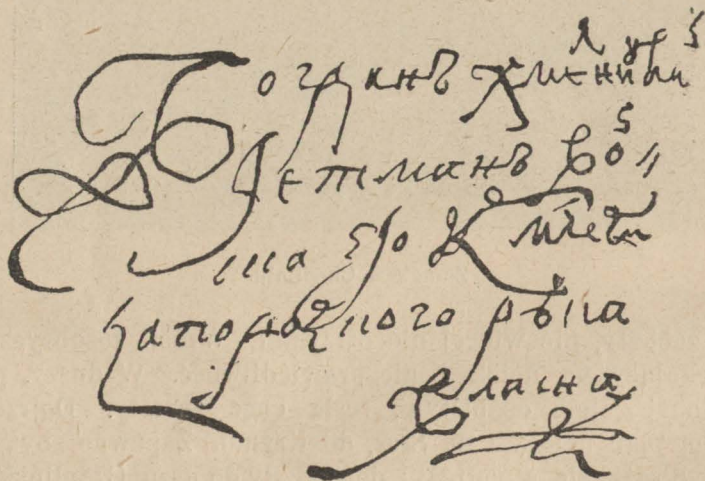 Богданъ Хмелницкий
Гетманъ Вой
ска его К
Запорозкого рука
власна